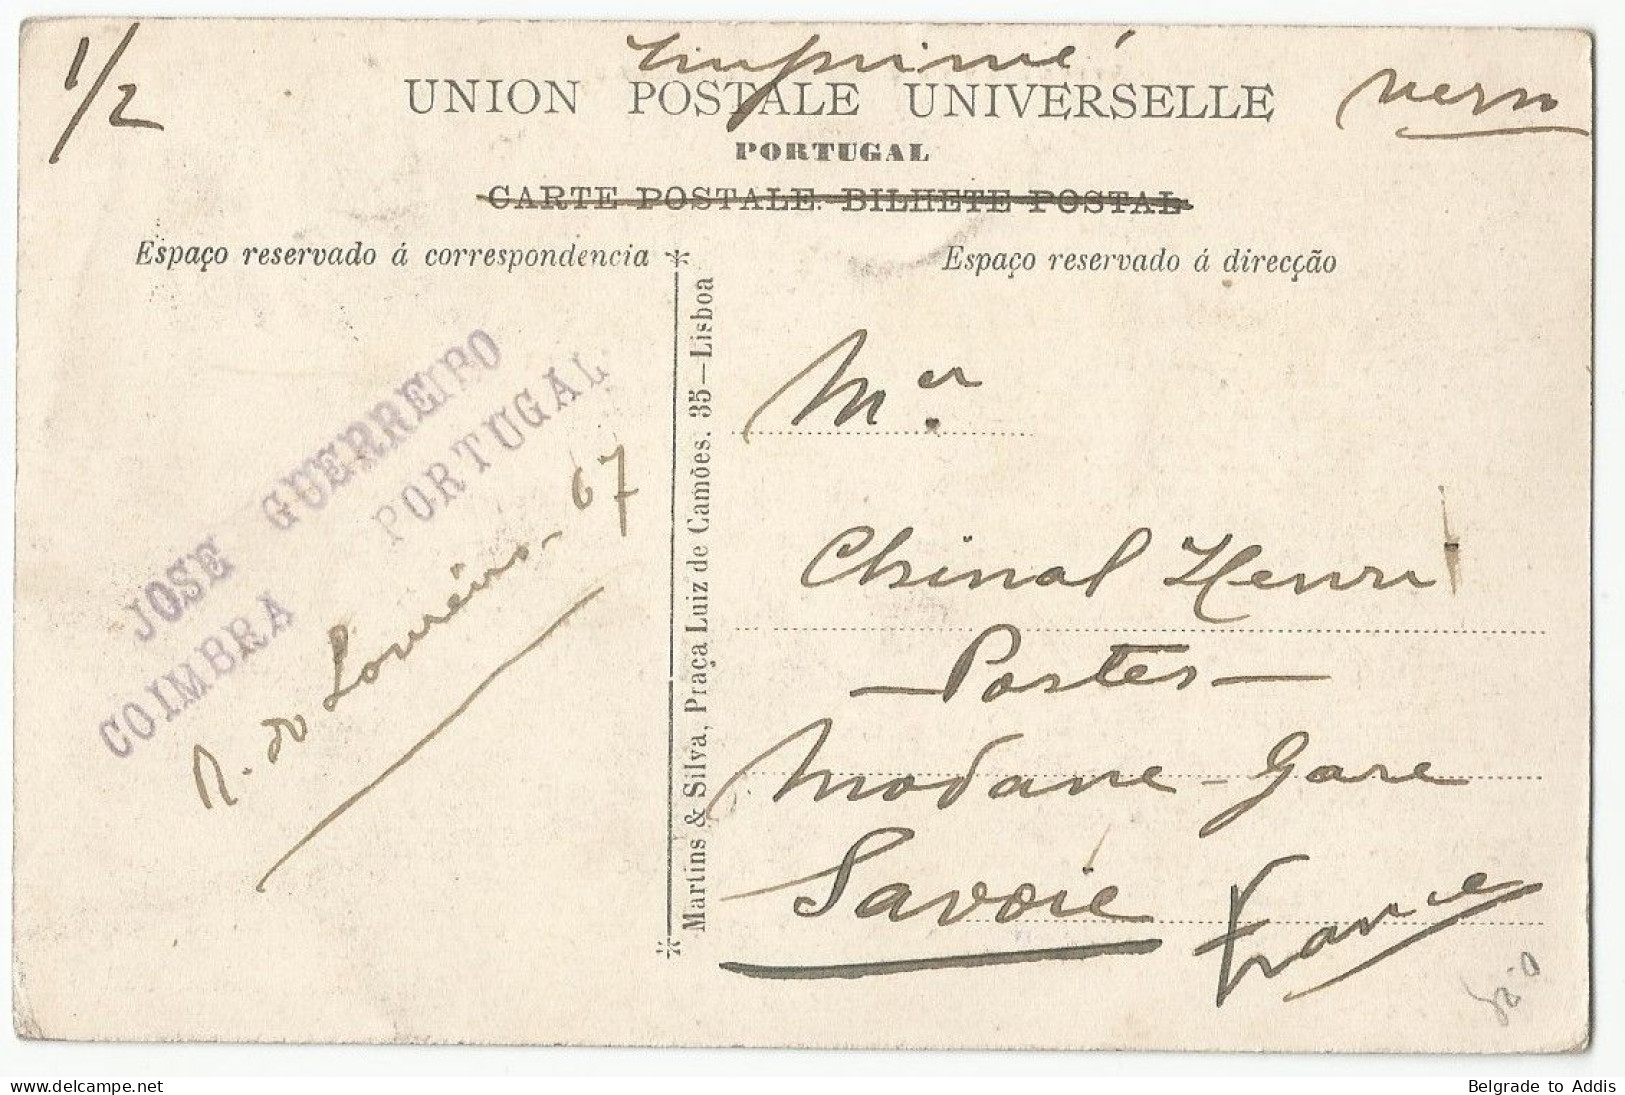 1/2
Imprimé
verso
UNION POSTALE UNIVERSELLE
PORTUGAL
CARTE POSTALE. BILHETE POSTAL
Espaço reservado á correspondencia
Espaço reservado á direcção
JOSE GUERREIRO
COIMBRA PORTUGAL
R. do Loureiro - 67
Martins & Silva, Praça Luiz de Camões. 35—Lisboa
Mer.
Chinal Henri
— Postes —
Modane - Gare
Savoie
France
Belgrade to Addis